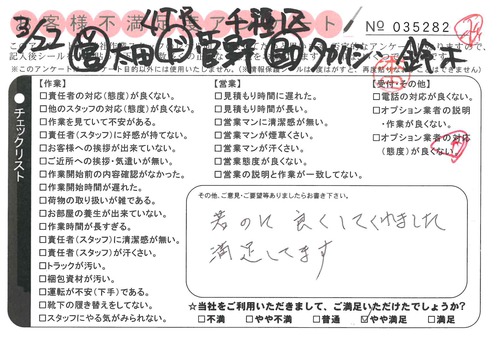 お客様不満足度アンケート
3/22
千種区
No 035282
チェックリスト
【作業】
□責任者の対応(態度)が良くない。
□他のスタッフの対応(態度)が良くない。
□作業を見ていて不安がある。
□責任者(スタッフ)に好感が持てない。
□お客様への挨拶が出来ていない。
□ご近所への挨拶・気遣いが無い。
□作業開始前の内容確認がなかった。
□作業開始時間が遅れた。
□荷物の取り扱いが雑である。
□お部屋の養生が出来ていない。
□作業時間が長すぎる。
□責任者(スタッフ)に清潔感が無い。
□責任者(スタッフ)が汗くさい。
□トラックが汚い。
□梱包資材が汚い。
□運転が不安(下手)である。
□靴下の履き替えをしてない。
□スタッフにやる気がみられない。
【営業】
□見積もり時間に遅れた。
□見積もり時間が長い。
□営業マンに清潔感が無い。
□営業マンが煙草くさい。
□営業マンが汗くさい。
□営業態度が良くない。
□営業の説明と作業が一致してない。
【受付・その他】
□電話の対応が良くない。
□オプション業者の説明
・作業が良くない。
□オプション業者の対応
(態度)が良くない
その他、ご意見・ご要望等ありましたらお書き下さい。
若いのに良くしてくれました
満足してます
☆当社をご利用いただきまして、ご満足いただけたでしょうか?
□不満 □やや不満 □普通 ☑やや満足 □満足